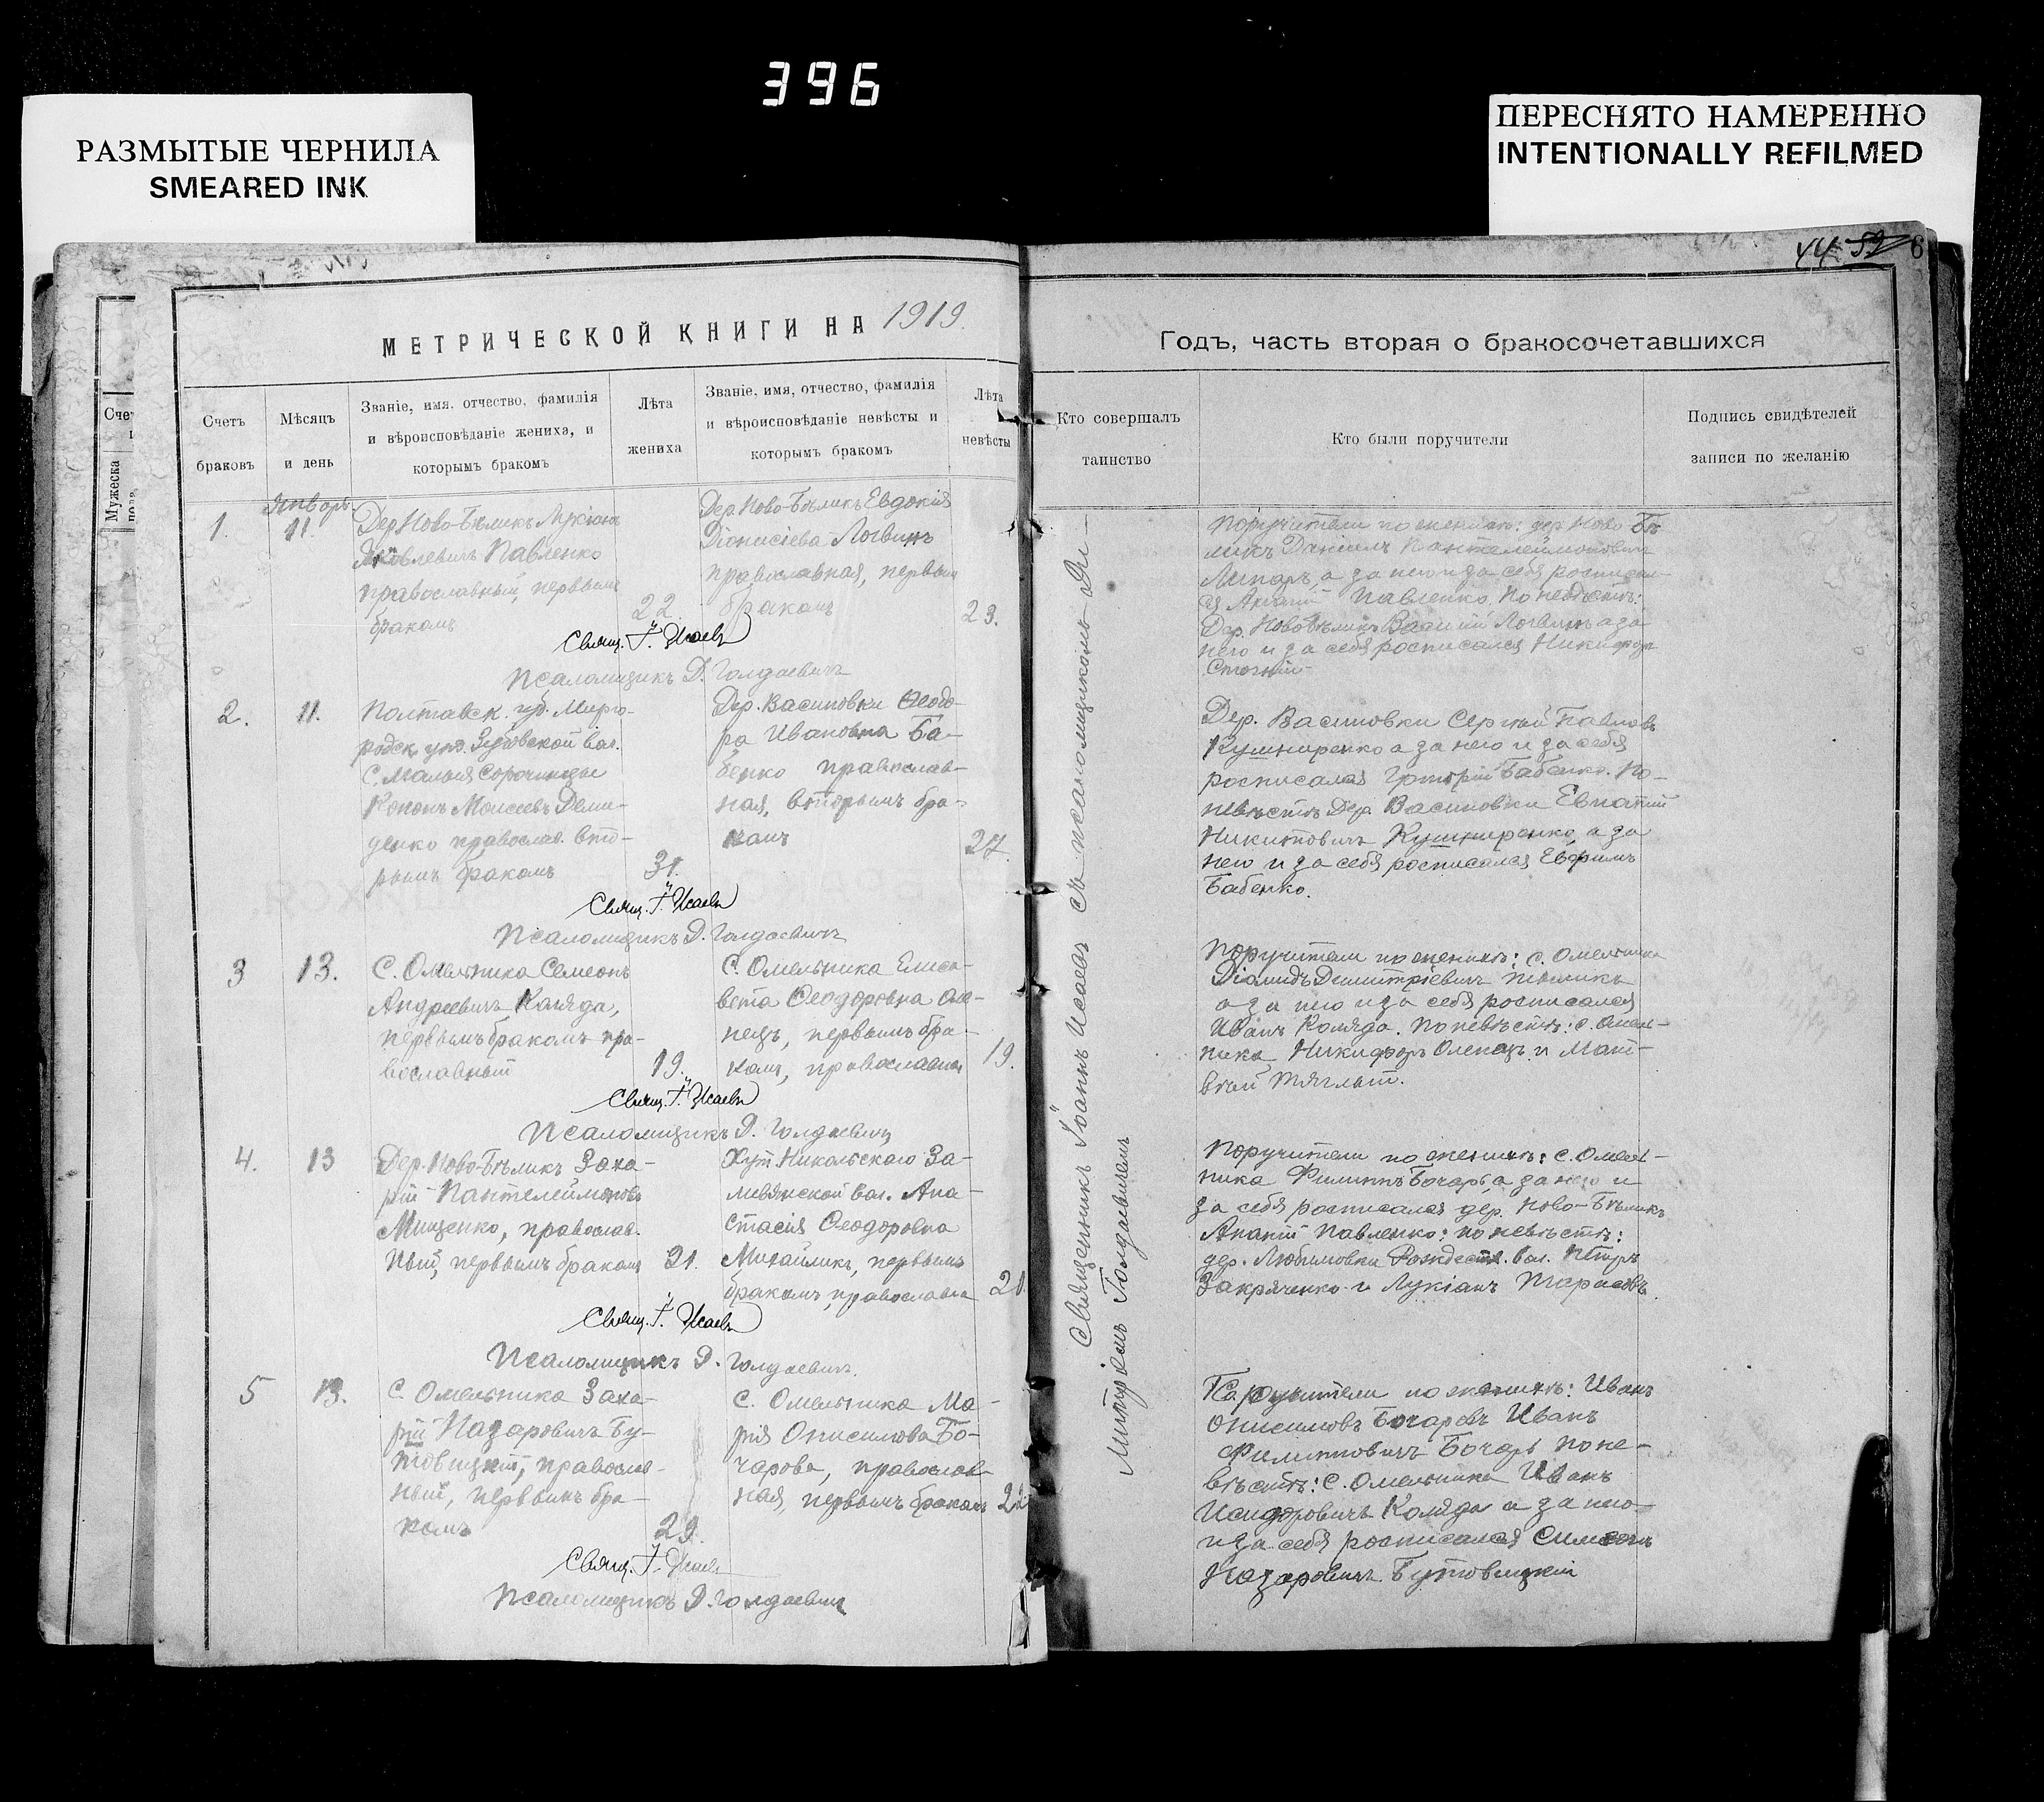 396
РАЗМЫТЫЕ ЧЕРНИЛА
SMEARED INK
ПЕРЕСНЯТО НАМЕРЕННО
INTENTIONALLY REFILMED
44 52 6
МЕТРИЧЕСКОЙ КНИГИ НА 1919.
Годъ, часть вторая о бракосочетавшихся
Счетъ
браковъ
Мѣсяцъ
и день
Званіе, имя, отчество, фамилія
и вѣроисповѣданіе жениха, и
которымъ бракомъ
Лѣта
жениха
Званіе, имя, отчество, фамилія
и вѣроисповѣданіе невѣсты и
которымъ бракомъ
Лѣта
невѣсты
Кто совершалъ
таинство
Кто были поручители
Подпись свидѣтелей
записи по желанію
Мужеска
Священникъ Іоаннъ Исаевъ съ псаломщикомъ Ди-
митріемъ Голдаевичемъ
1.
Январь
11.
Дер. Ново-Бѣликъ Лукіанъ
Яковлевичъ Павленко
православный, первымъ
бракомъ
22
Дер. Ново-Бѣликъ Евдокія
Діонисіева Логвинъ
православная, первым
бракомъ
23.
Поручители по женихѣ: дер. Ново Бѣ
ликъ Даніилъ Пантелеймонович
а за него и за себя росписал-
ся Павленко. По невѣстѣ:
Дер. Новобѣликъ Василій Логвинъ а за
него и за себя росписался Никифоръ
Свящ. І. Исаевъ
Псаломщикъ Д. Голдаевичъ
2.
11.
Полтавск. губ. Мирго-
родск. уѣз. Зубовской вол.
С. Малыя Сорочинцы
Кононъ Моисеевъ Деми-
денко православ. вто-
рымъ бракомъ
31.
Дер. Васиновки Ѳеодо-
ра Ивановна Ба-
бенко православ-
ная, вторымъ бра-
комъ
27.
Дер. Васиновки Сергій Павловъ
Кушниренко а за него и за себя
росписался Григорій Бабенко. По-
невѣстѣ Дер. Васиновки Евпатій
Никитовичъ Кушниренко, а за
него и за себя росписался Евфимъ
Бабенко.
Свящ. І. Исаевъ
Псаломщикъ Д. Голдаевичъ
3
13.
С. Омельника Семеонъ
Андреевичъ Коляда,
первымъ бракомъ пра-
вославный
19.
С. Омельника Елиса-
вета Ѳеодоровна Оле-
нецъ, первымъ бра-
комъ, православная
19.
Поручители по женихѣ: с. Омельника
Діомидъ Димитріевичъ
а за него и за себя росписался
Иванъ Коляда. По невѣстѣ: с. Омель-
ника Никифоръ Оленецъ и Мат-
вѣй Тяглый.
Свящ. І. Исаевъ
Псаломщикъ Д. Голдаевичъ
4.
13
Дер. Ново-Бѣликъ Заха-
рій Пантелеймоновъ
Мищенко, православ.
ный, первымъ бракомъ
21.
Хут. Никольскаго За-
ливянской вол. Ана-
стасія Ѳеодоровна
Михайликъ, первымъ
бракомъ, православна
21.
Поручители по женихѣ: с. Омель-
ника Филиппъ Бочаръ, а за него и
за себя росписался дер. Ново-Бѣликъ
Ананій Павленко: по невѣстѣ:
дер. Любимовки Рождеств. вол. Петръ
Закряченко и Лукіанъ Тарасовъ.
Свящ. І. Исаевъ
Псаломщикъ Д. Голдаевичъ.
5
13.
С. Омельника Заха-
рій Назаровичъ Бу-
товицкій, православ-
ный, первымъ бра-
комъ
29.
С. Омельника Ма-
рія Онисимова Бо-
чарова, православ-
ная, первымъ бракомъ
22
Поручители по женихѣ: Иванъ
Онисимовъ Бочаровъ Иванъ
Филипповичъ Бочаръ по не-
вѣстѣ: С. Омельника Иванъ
Исидоровичъ Коляда а за него
и за себя росписался Симеонъ
Назаровичъ Бутовицкій
Свящ. І. Исаевъ
Псаломщикъ Д. Голдаевичъ